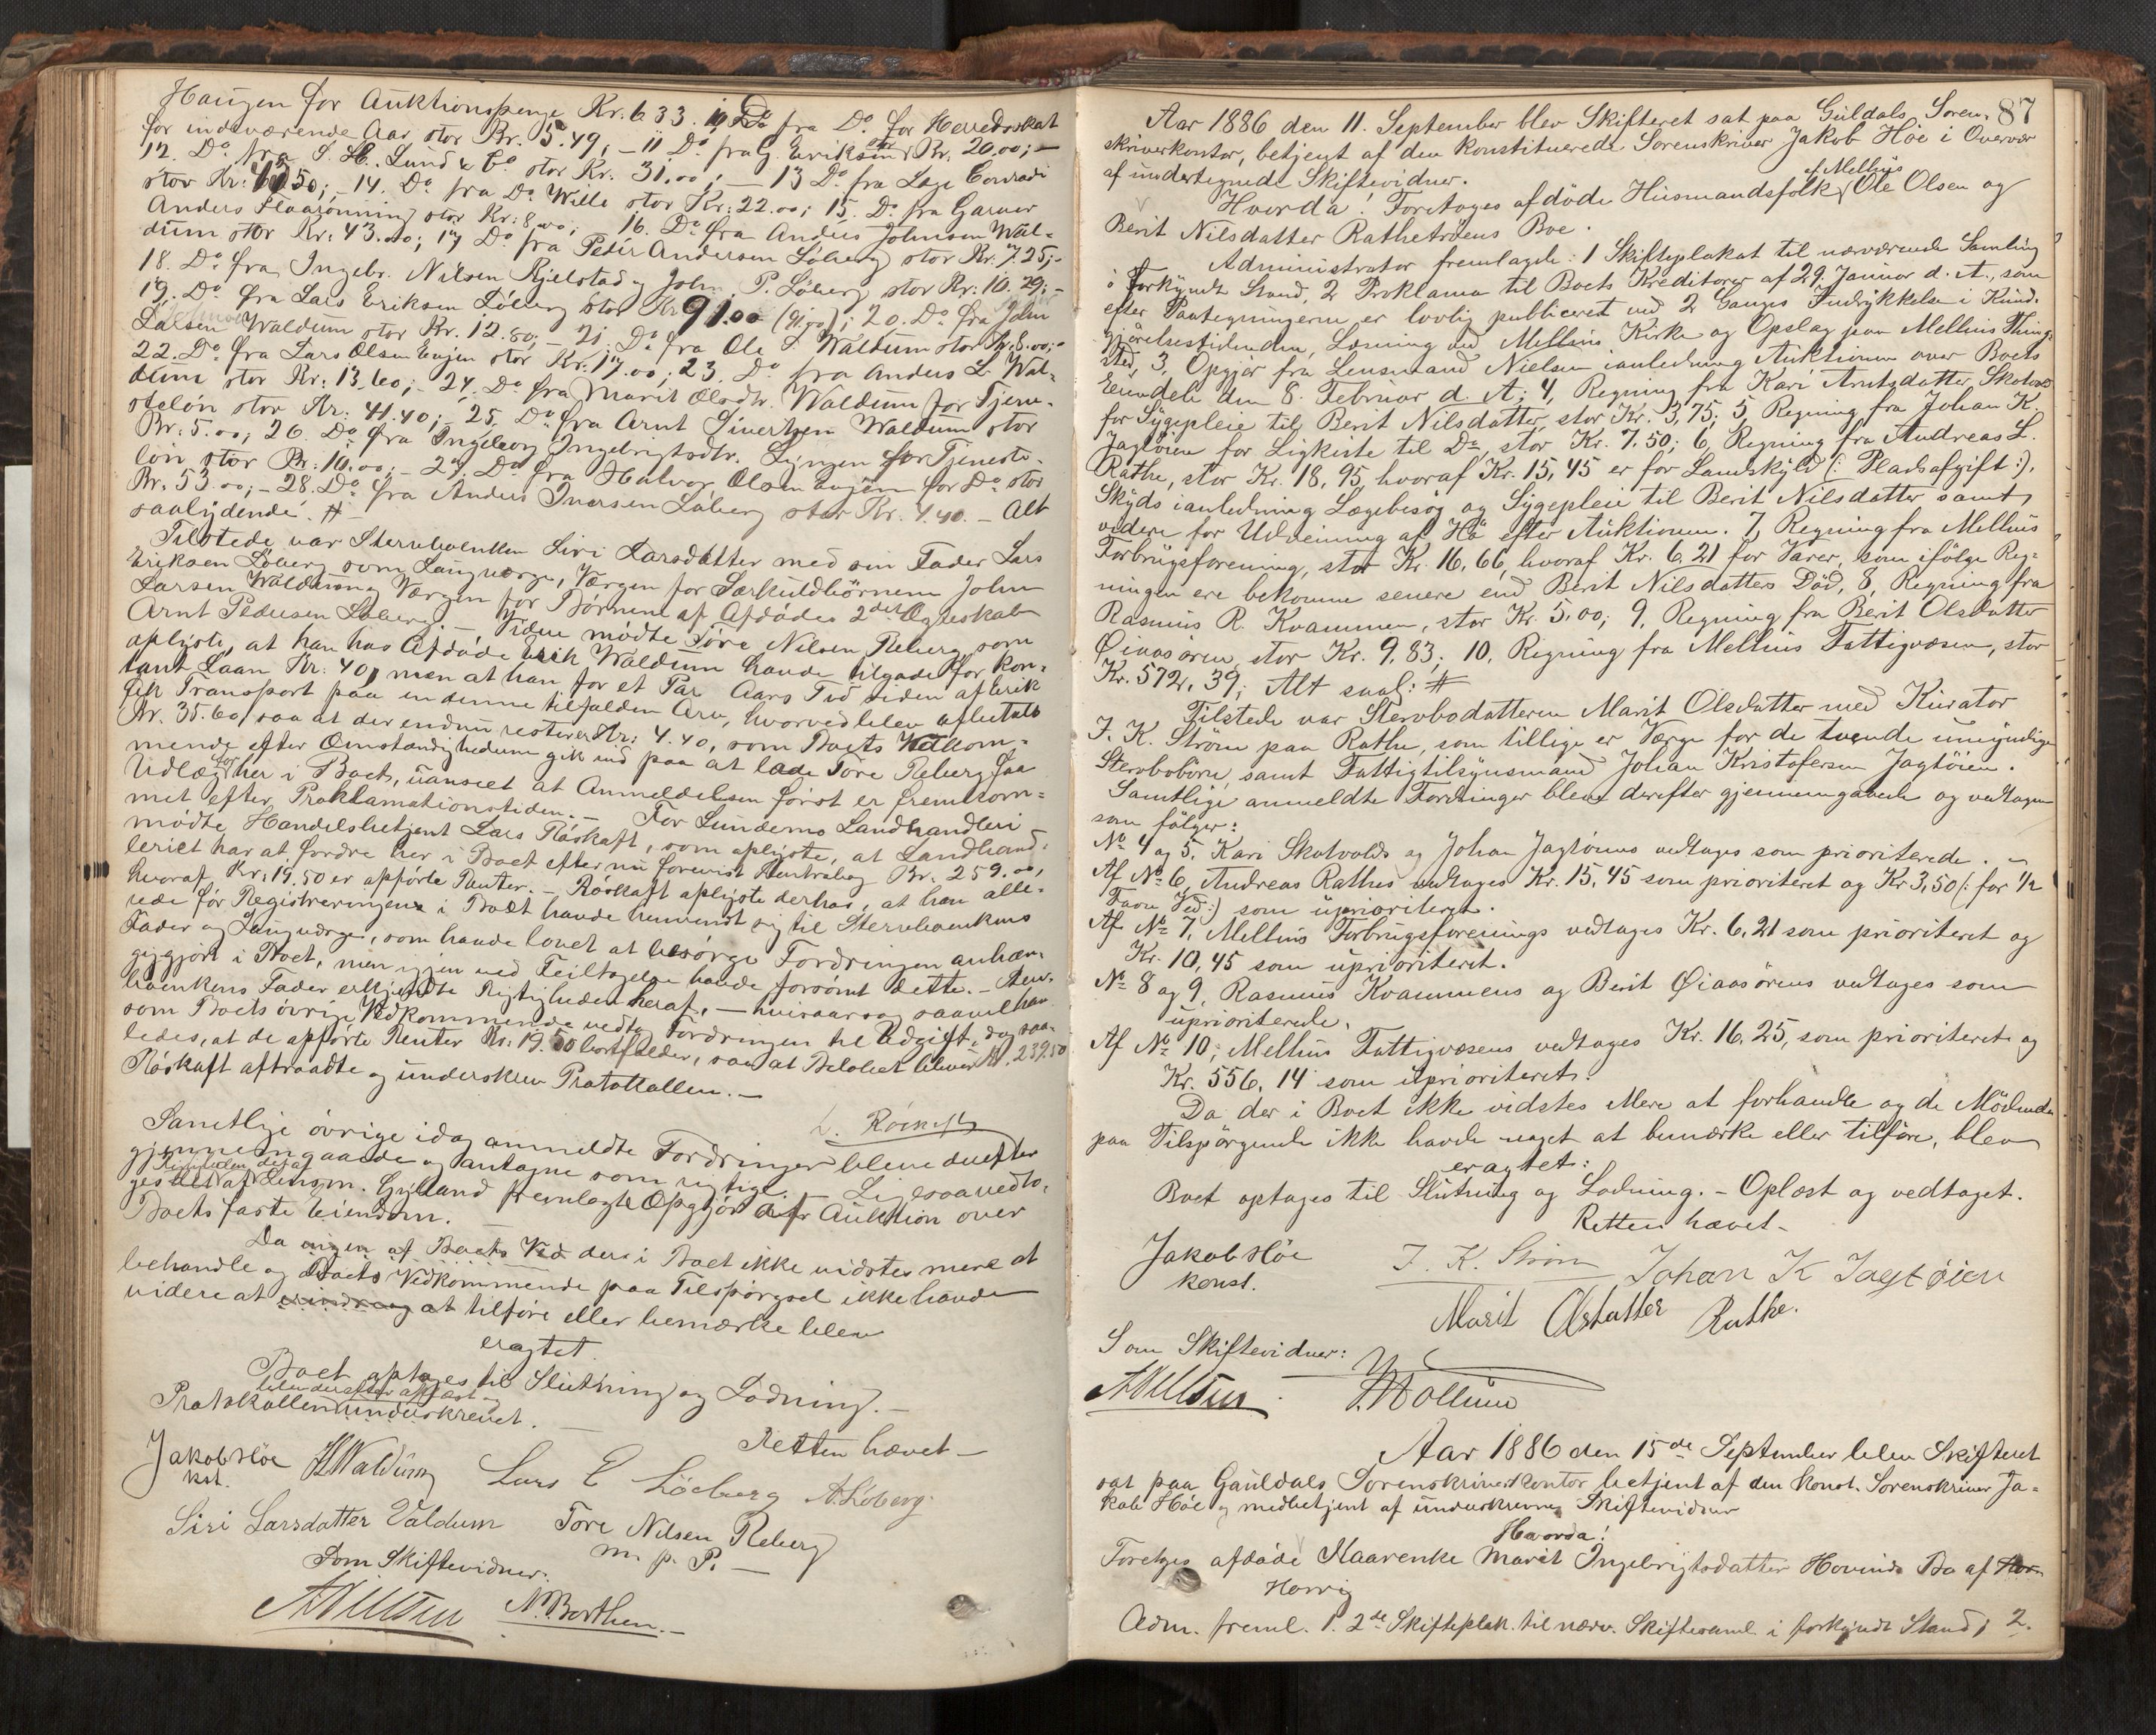 Haugen for Auktionspenge Kr. 633. 10 Do fra Do for Herredsskat
for indeværende Aar stor Kr. 5.49, - 11 Do fra G. Eriksen stor Kr. 20.00; -
12. Do fra S. H. Lund & Co stor Kr. 31.00; - 13 Do fra Lage Conradi
stor Kr: 40.50; - 14. Do fra Do Wille stor Kr: 22.00; 15. Do fra Garver
Anders Flaarönning stor Kr: 8,00; 16. Do fra Anders Johnsen Wal-
dum stor Kr: 43.00; 17 Do fra Peder Andersen Löberg stor Kr. 7.25; -
18. Do fra Ingebr. Nilsen Kjelstad og John P. Löberg stor Kr: 10.29; -
19. Do fra Lars Eriksen Löberg stor Kr 91.00 (91.00); 20. Do fra John
Larsen Waldum stor Kr. 12.80; - 21. Do fra Ole S. Waldum stor Kr. 8.00; -
22. Do fra Lars Olsen Engen stor Kr: 17.00; 23. Do fra Anders L. Wal-
dum stor Kr: 13.60; - 24. Do fra Marit Olsdtr. Waldum for Tjene-
stelön stor Kr: 41.40; 25. Do fra Arnt Sivertsen Waldum stor
Kr: 5.00; 26. Do fra Ingeborg Ingebrigtsdtr. Lyngen for Tjeneste-
lön stor Kr: 10.00; - 27. Do fra Halvor Olsen Engen for Do stor
Kr. 53.00; - 28. Do fra Anders Iversen Löberg stor Kr. 4.40. - Alt
saalydende. #
Tilstede var Stervboenken Siri Larsdatter med sin Fader Lars
Eriksen Löberg som Laugværge, Værgen for Særkuldbörnene John
Larsen Waldum og Værgen for Börnene af Afdödes 2det Ægteskab
Arnt Pedersen Löberg. - Videre mödte Töre Nilsen Reberg som
oplyste, at han hos Afdöde Erik Waldum havde tilgode for kon-
tant Laan Kr: 40, men at han for et Par Aars Tid siden af Erik
fik Transport paa en denne tilfalden Arv, hvorved blev afbetalt
Kr. 35.60, saa at der endnu resterer Kr: 4.40, som Boets Vedkom-
mende efter Omstændighederne gik ind paa at lade Töre Reberg faa
Udlæg for her i Boet, uanseet at Anmeldelsen först er fremkom-
met efter Proklamationstiden. - For Lundemo Landhandleri
mödte Handelsbetjent Lars Röskaft, som oplyste, at Landhand-
leriet har at fordre her i Boet efter nu forevist Kontrabog Kr. 259.00,
hvoraf Kr: 19.50 er opförte Renter. - Röskaft oplyste derhos, at han alle-
rede för Registreringen i Boet havde henvendt sig til Stervboenkens
Fader og Laugværge, som havde lovet at besörge Fordringen anhæn-
giggjort i Boet, men igjen ved Feiltagelse havde forsömt dette. - Sterv-
boenkens Fader erkjendte Rigtigheden heraf, - hvisaarsag saavel han
som Boets övrige Vedkommende vedtog Fordringen til Udgift, dog saa-
ledes, at de opförte Renter Kr: 19.50 bortfalder, saa at Beløbet bliver Kr. 239.50
Röskaft aftraadte og underskrev Protokollen. -
L. Röskaft
Samtlige övrige idag anmeldte Fordringer bleve derefter
gjennemgaaede og antagne som rigtige. - Ligesaa vedto-
Rigtigheden deraf
ges det af Lensm. Gylland fremlagte Opgjör for Auktion over
Boets faste Eiendom.
Da ingen af Boets Ved der i Boet ikke vidstes mere at
behandle og Boets Vedkommende paa Tilspörgsel ikke havde
videre at erindre og at tilföre eller bemærke blev
eragtet
Boet optages til Slutning og Lodning. -
blev derefter oplæst og
Protokollen underskrevet.
Retten hævet -
Jakob Höe
kst.
Lars E Löeberg A. Löberg.
Siri Larsdatter Valdum Tore Nilsen Reberg
m. p. P. -
Som Skiftevidner:
N. Borthen. -
87
Aar 1886 den 11. September blev Skifteret sat paa Guldals Soren-
skriverkontor, betjent af den konstituerede Sorenskriver Jakob Höe i Overvær
af undertegnede Skiftevidner.
af Melhus
Hvorda! Foretoges afdöde Husmandsfolk Ole Olsen og
Berit Nilsdatter Rathetröens Boe.
Administrator fremlagde: 1 Skifteplakat til nærværende Samling
i Forkyndt Stand, 2 Proklama til Boets Kreditorer af 29. Januar d. A., som
efter Paategningerne er lovlig publiceret ved 2 Ganges Indrykkelse i Kund-
gjörelsestidenden, Læsning ved Melhus Kirke og Opslag paa Melhus Thing-
sted, 3, Opgjör fra Lensmand Nielsen ianledning Auktionen over Boets
Eiendele den 8. Februar d. A; 4, Regning fra Kari Arntsdatter Skotvold
for Sygepleie til Berit Nilsdatter, stor Kr. 3,75; 5, Regning fra Johan K.
Jagtöien for Ligkiste til Do stor Kr. 7.50; 6, Regning fra Andreas L.
Rathe, stor Kr. 18,95, hvoraf Kr. 15,45 er for Landskyld (: Pladsafgift :),
Skyds ianledning Lægebesög og Sygepleie til Berit Nilsdatter samt
videre for Udveining af Hö efter Auktionen. 7, Regning fra Melhus
Forbrugsforening, stor Kr. 16,66, hvoraf Kr. 6,21 for Varer, som ifölge Reg-
ningen ere bekomne senere end Berit Nilsdatters Död, 8, Regning fra
Rasmus R. Kvammen, stor Kr. 5,00; 9, Regning fra Berit Olsdatter
Øiaasören, stor Kr. 9,83; 10, Regning fra Melhus Fattigvæsen, stor
Kr. 572,39; Alt saal: #
Tilstede var Stervbodatteren Marit Olsdatter med Kurator
J. K. Ström paa Rathe, som tillige er Værge for de tvende umyndige
Stervbobörn, samt Fattigtilsynsmand Johan Kristofersen Jagtöien.
Samtlige anmeldte Fordringer bleve derefter gjennemgaaede og vedtagne
som fölger:
No 4 og 5, Kari Skotvolds og Johan Jagtöiens vedtages som prioriterede. -
Af No 6, Andreas Rathes vedtages Kr. 15,45 som prioriteret og Kr 3,50 (: for 1/2
Favn Ved :) som uprioriteret.
Af No 7, Melhus Forbrugsforenings vedtages Kr. 6,21 som prioriteret og
Kr. 10,45 som uprioriteret.
No 8 og 9, Rasmus Kvammens og Berit Øiaasörens vedtages som
uprioriterede.
Af No 10; Melhus Fattigvæsens vedtages Kr. 16,25, som prioriteret og
Kr. 556,14 som uprioriteret.
Da der i Boet ikke vidstes Mere at forhandle og de Mödende
paa Tilspörgende ikke havde noget at bemærke eller tilföre, blev
eragtet:
Boet optages til Slutning og Lodning. - Oplæst og vedtaget.
Retten hævet -
Jakob Höe
konst.
J. K. Ström Johan K Jagtøien
Marit Olsdatter Rathe.
Som Skiftevidner:
Aar 1886 den 15de September blev Skifteret
sat paa Gauldals Sorenskriverkontor betjent af den konst. Sorenskriver Ja-
kob Höe og medbetjent af underskrevne Skiftevidner
Hvorda!
Foretoges afdöde Kaarenke Marit Ingebrigtsdatter Hovinds Bo af Hor-
Horrig
Adm. freml. 1. 2de Skifteplak. til nærv. Skiftesaml i forkyndt Stand, 2.